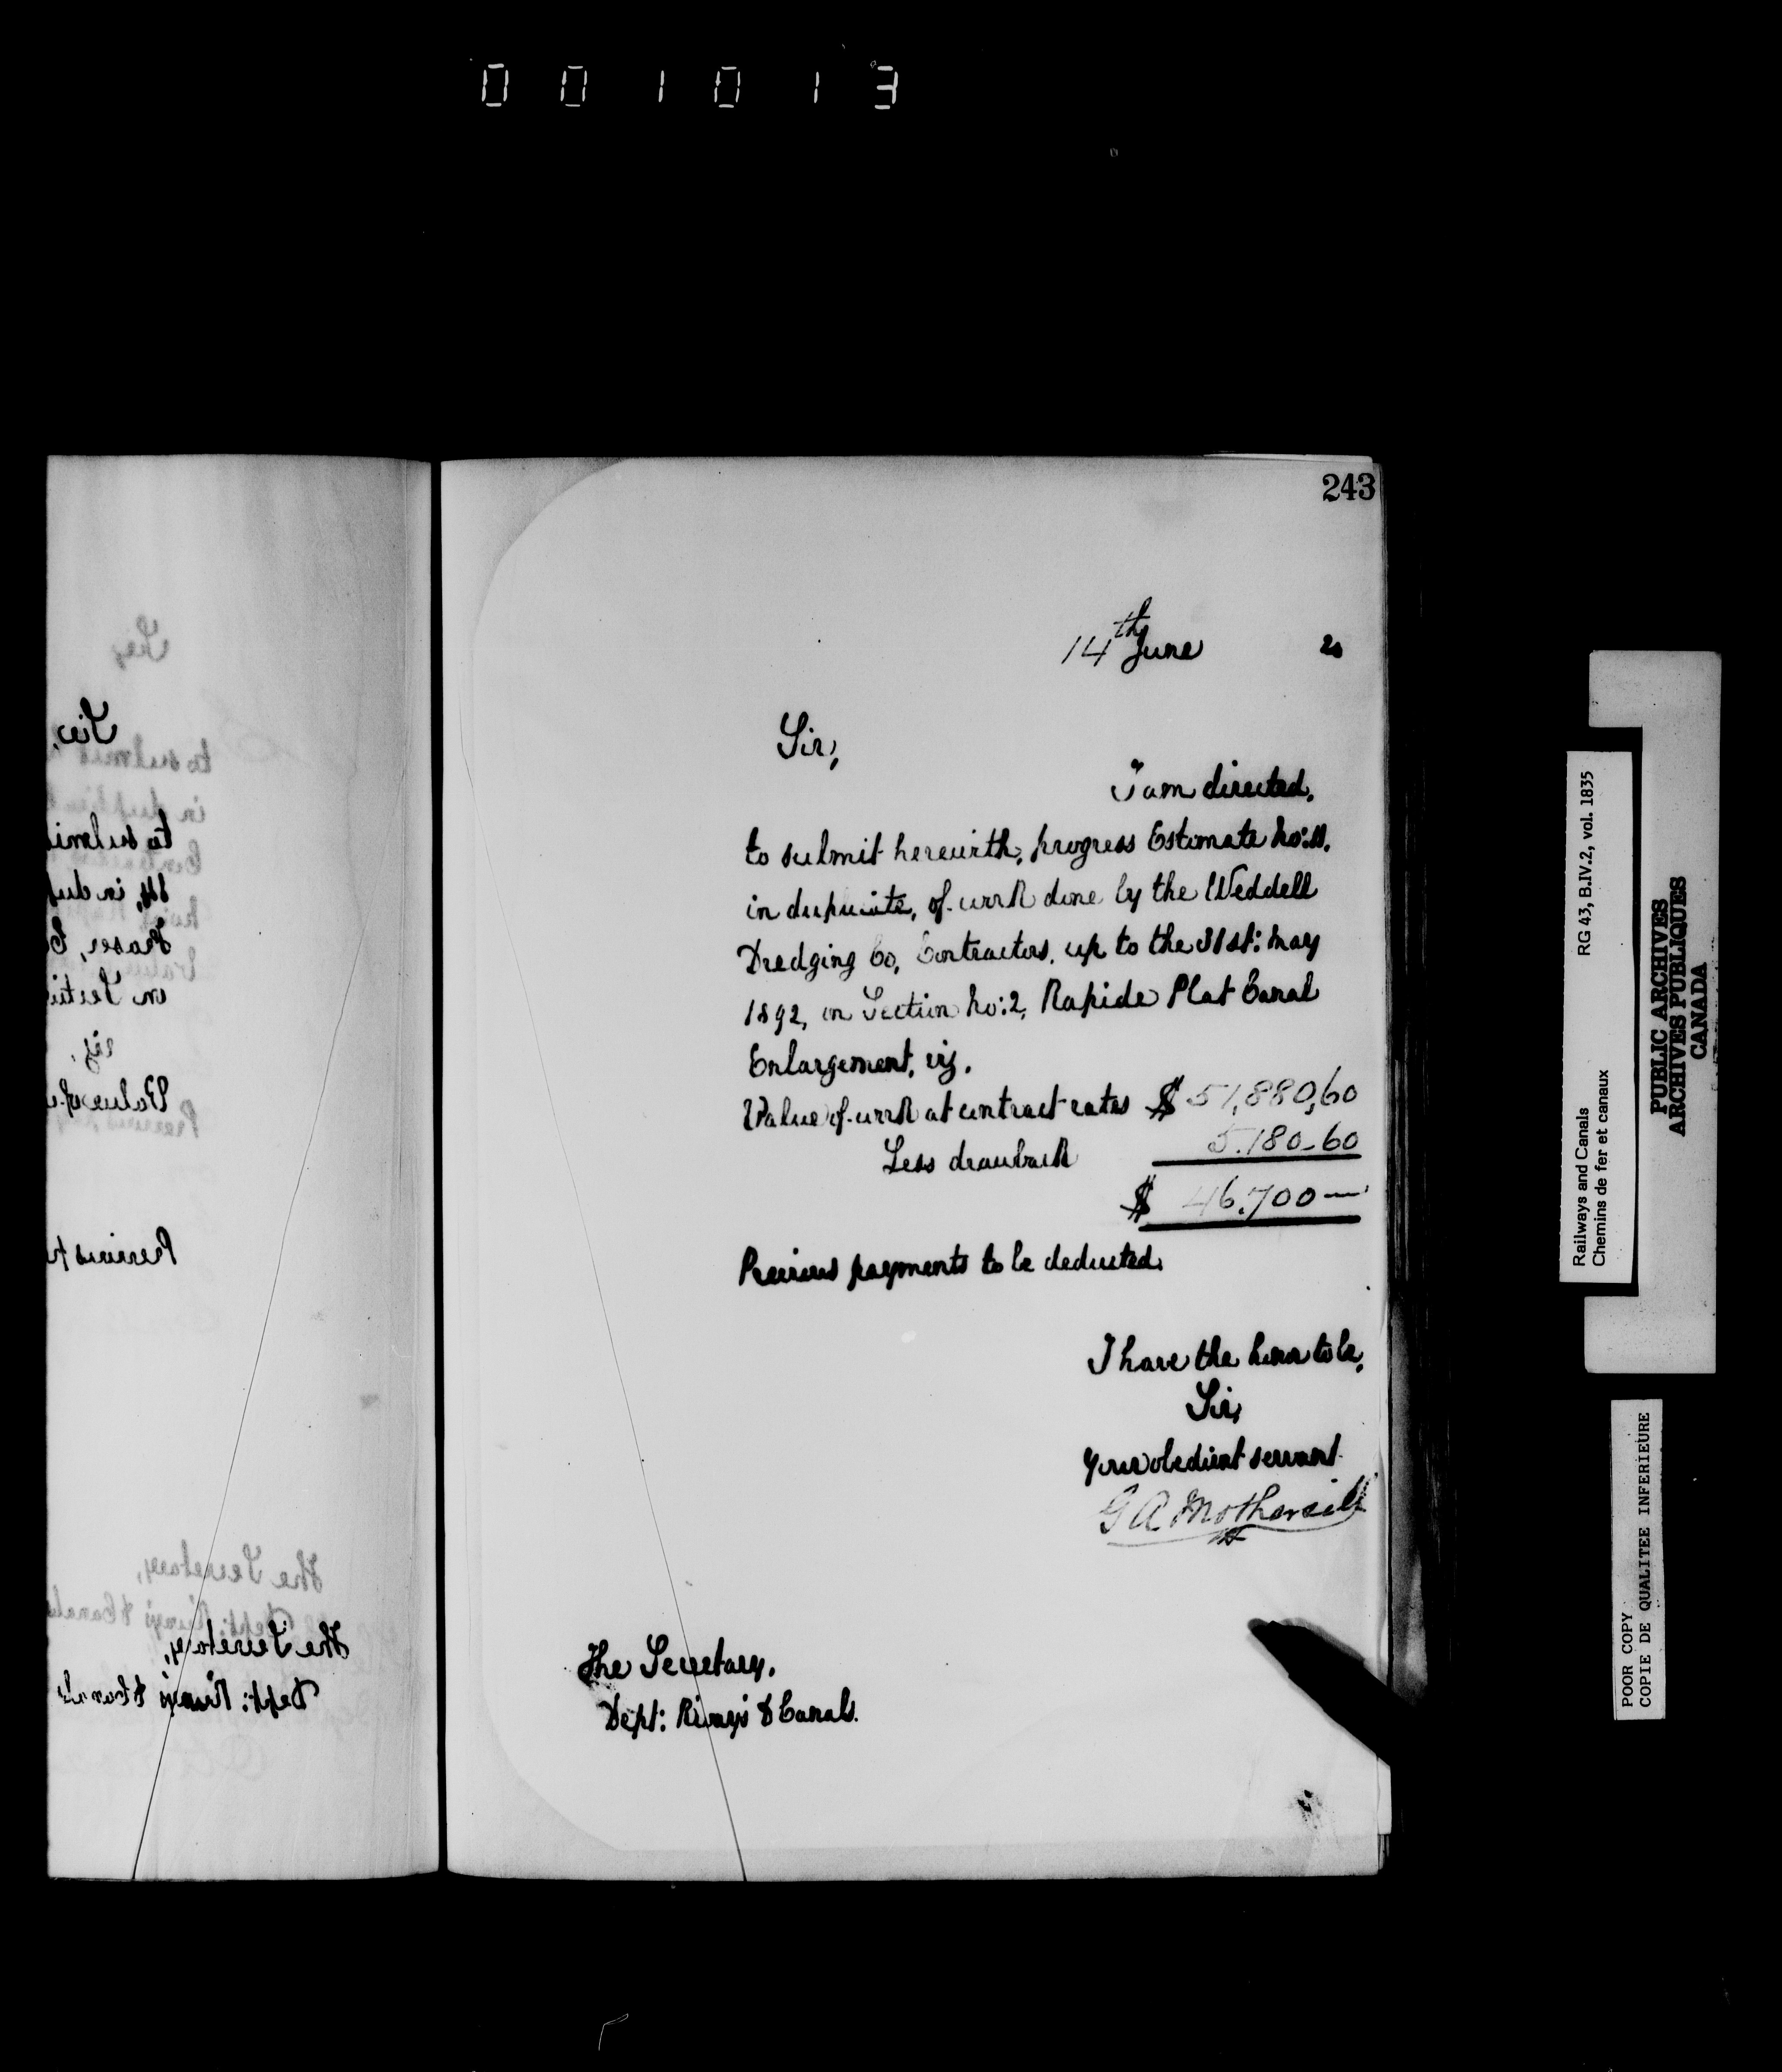 001013
243
14th June 2
Sir,
I am directed,
to submit herewith, progress Estimate No: 11,
in duplicate, of work done by the Weddell
Dredging Co, Contractors, up to the 31st: May
1892, on Section No: 2, Rapide Plat Canal
Enlargement, viz.
Value of work at contract rates $ 51,880,60
Less drawback 5.180-60
$ 46.700 —
Previous payments to be deducted.
I have the honor to be,
Sir,
Your obedient servant
G A Mothersill
The Secretary,
Dept: Rlways & Canals.
Sir,
Sir,
to submit
in dupli
to submi
in dup
Fraser, C
on Secti
viz.
Value of
Previous p
The Secretary,
Dept: Rlways & Canals
The Secretary,
Dept: Rlways & Canals
Railways and Canals RG 43, B.IV.2, vol. 1835
Chemins de fer et canaux
PUBLIC ARCHIVES
ARCHIVES PUBLIQUES
CANADA
POOR COPY
COPIE DE QUALITEE INFERIEURE